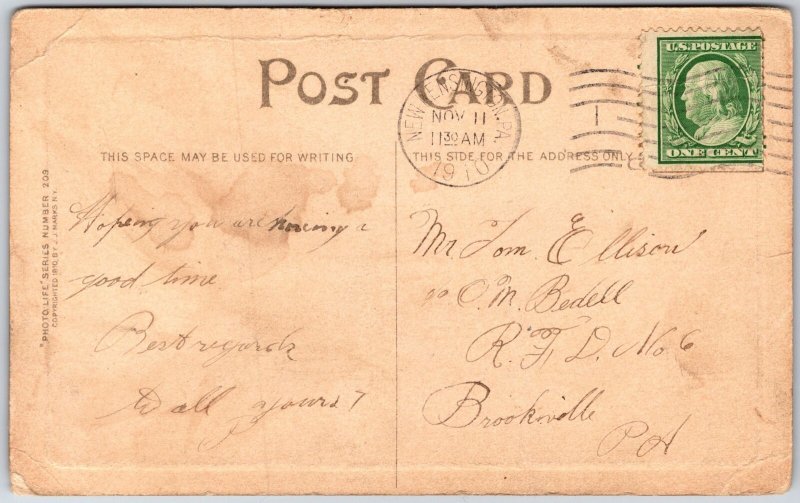 POST CARD
U.S. POSTAGE
ONE CENT
NEW KENSINGTON, PA.
NOV 11
11 30 AM
1910
1
THIS SPACE MAY BE USED FOR WRITING
THIS SIDE FOR THE ADDRESS ONLY
"PHOTO LIFE" SERIES NUMBER 209
COPYRIGHTED 1910, BY J. J. MARKS N.Y.
Hoping you are having a
good time
Best regards
to all yours
Mr Tom Ellison
℅ O. M. Bedell
R. F. D. No 6
Brookville
PA